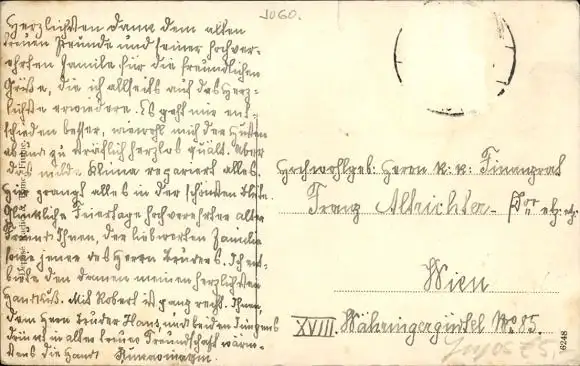 1060.
Herzlichsten Dank dem alten
treuen Freunde und seiner hochver-
ehrten Familie für die freundlichen
Grüße, die ich allseits auf das Herz-
lichste erwiedere. Es geht mir ent-
schieden besser, wiewohl mich der Husten
ab und zu herzlos quält. Aber
das milde Klima repariert alles.
Hier prangt alles in der schönsten
Glückliche Feiertage hochverehrter alter
Freund Ihnen, der liebwerten Familie
sowie jener des Herrn Bruders. Ich ent-
biete den Damen meinen herzlichsten
Handkuß. Mit Robert ist ganz recht. Ihnen,
dem Herrn Bruder Hans, und beiden Jungens
drückt in alter treuer Freundschaft wärm-
stens die Hand
Hochwohlgeb: Herrn K: K: Finanzrat
Franz Altrichter
Wien
XVIII. Währingergürtel No 85.
6248